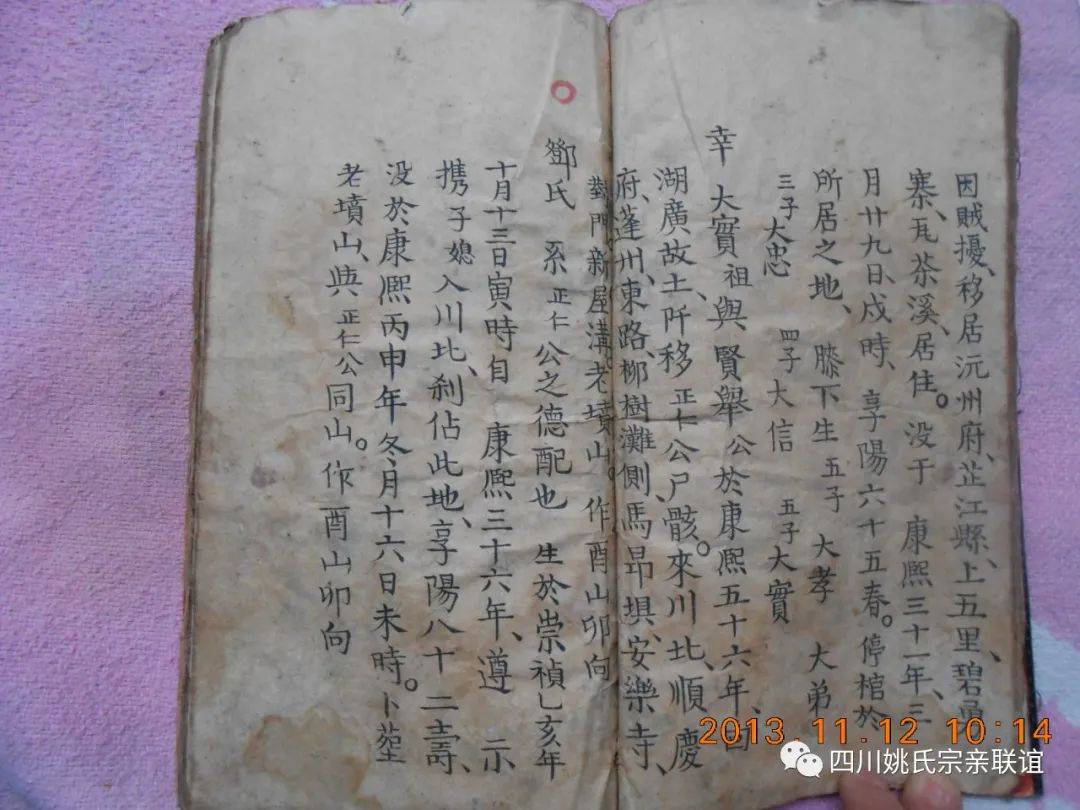 因賊擾、移居沅州府、芷江縣、上五里、碧
寨、瓦茶溪、居住。 没于 康熙三十一年、三
月廿九日、戍時、享陽六十五春。停棺於
所居之地、 膝下生五子 大孝 大弟
三子大忠 四子大信 五子大實
幸 大實祖與賢舉公於康熙五十六年、回
湖廣故土、阡移正仁公尸骸。來川北、順慶
府、蓬州、東路、柳樹灘側、馬昂垻、安樂寺、
對門新屋溝老墳山。作酉山卯向
鄧氏 系正仁公之德配也 生於崇禎乙亥年
十月十三日寅時自 康熙三十六年、遵 示
携子媳入川北、刹佔此地、享陽八十二壽、
没於康熙丙申年冬月十六日未時。卜塟
老墳山、與正仁公同山。作酉山卯向
2013.11.12 10:14
四川姚氏宗亲联谊